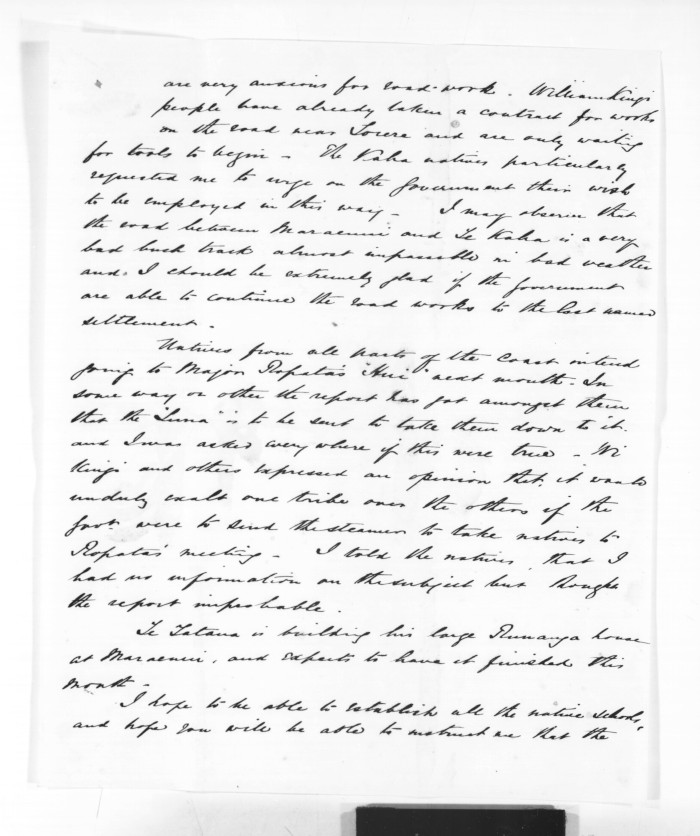 are very anxious for road-work. William King's
people have already taken a contract for works
on the road near Torere and are only waiting
for tools to begin - The Kaha natives particularly
requested me to urge on the Government their wish
to be employed in this way - I may observe that
the road between Maraenui and Te Kaha is a very
bad bush track almost impassible in bad weather
and I should be extremely glad if the government
are able to continue the road works to the last named
settlement -
Natives from all parts of the coast intend
going to Major Ropata's "Hui" next month - In
some way or other the report has got amongst them
that the "Luna" is to be sent to take them down to it.
and I was asked everywhere if this were true - Wi
Kingi and others expressed an opinion that, it would
unduly exalt one tribe over the others if the
Govt. were to send the steamer to take natives to
Ropata's meeting - I told the natives, that I
had no information on the subject but thought
the report improbable.
Te Tatana is building his large Runanga house
at Maraenui, and expects to have it finished this
month -
I hope to be able to establish all the native schools,
and hope you will be able to instruct me that the